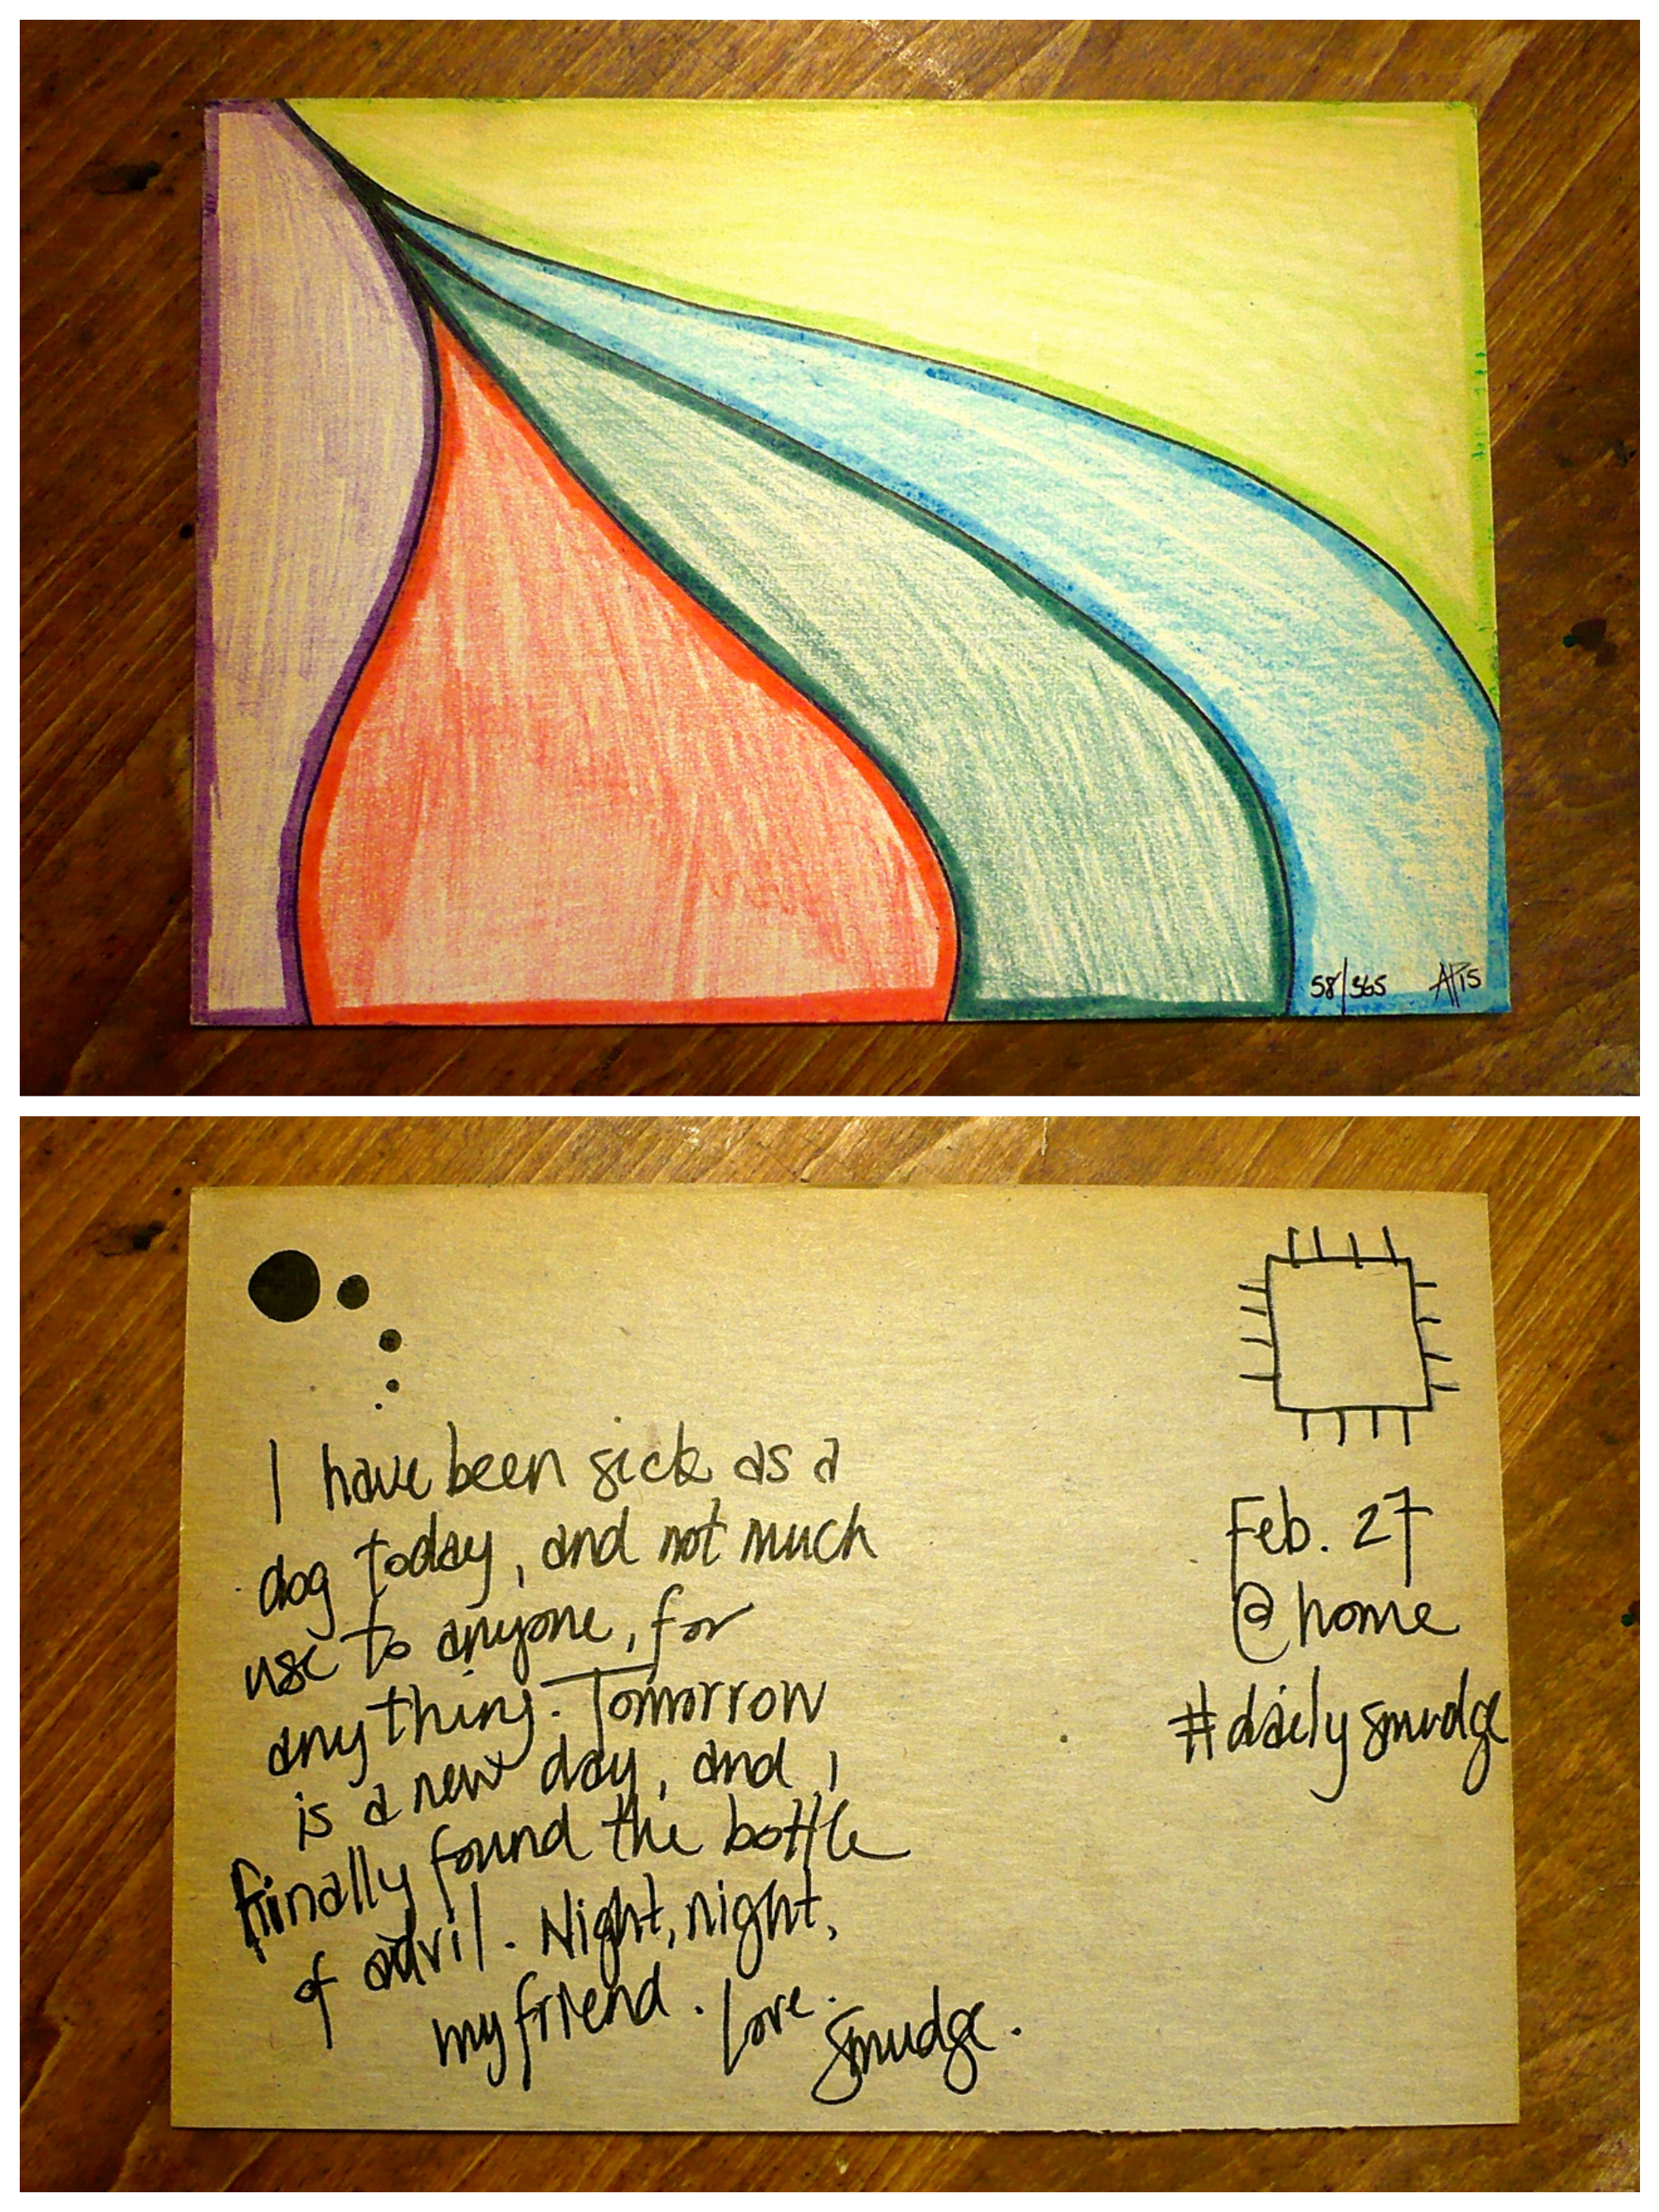 58/365 AP15
I have been sick as a
dog today, and not much
use to anyone, for
anything. Tomorrow
is a new day, and I
finally found the bottle
of advil. Night, night,
my friend. Love.
Smudge.
Feb. 27
@home
#dailysmudge